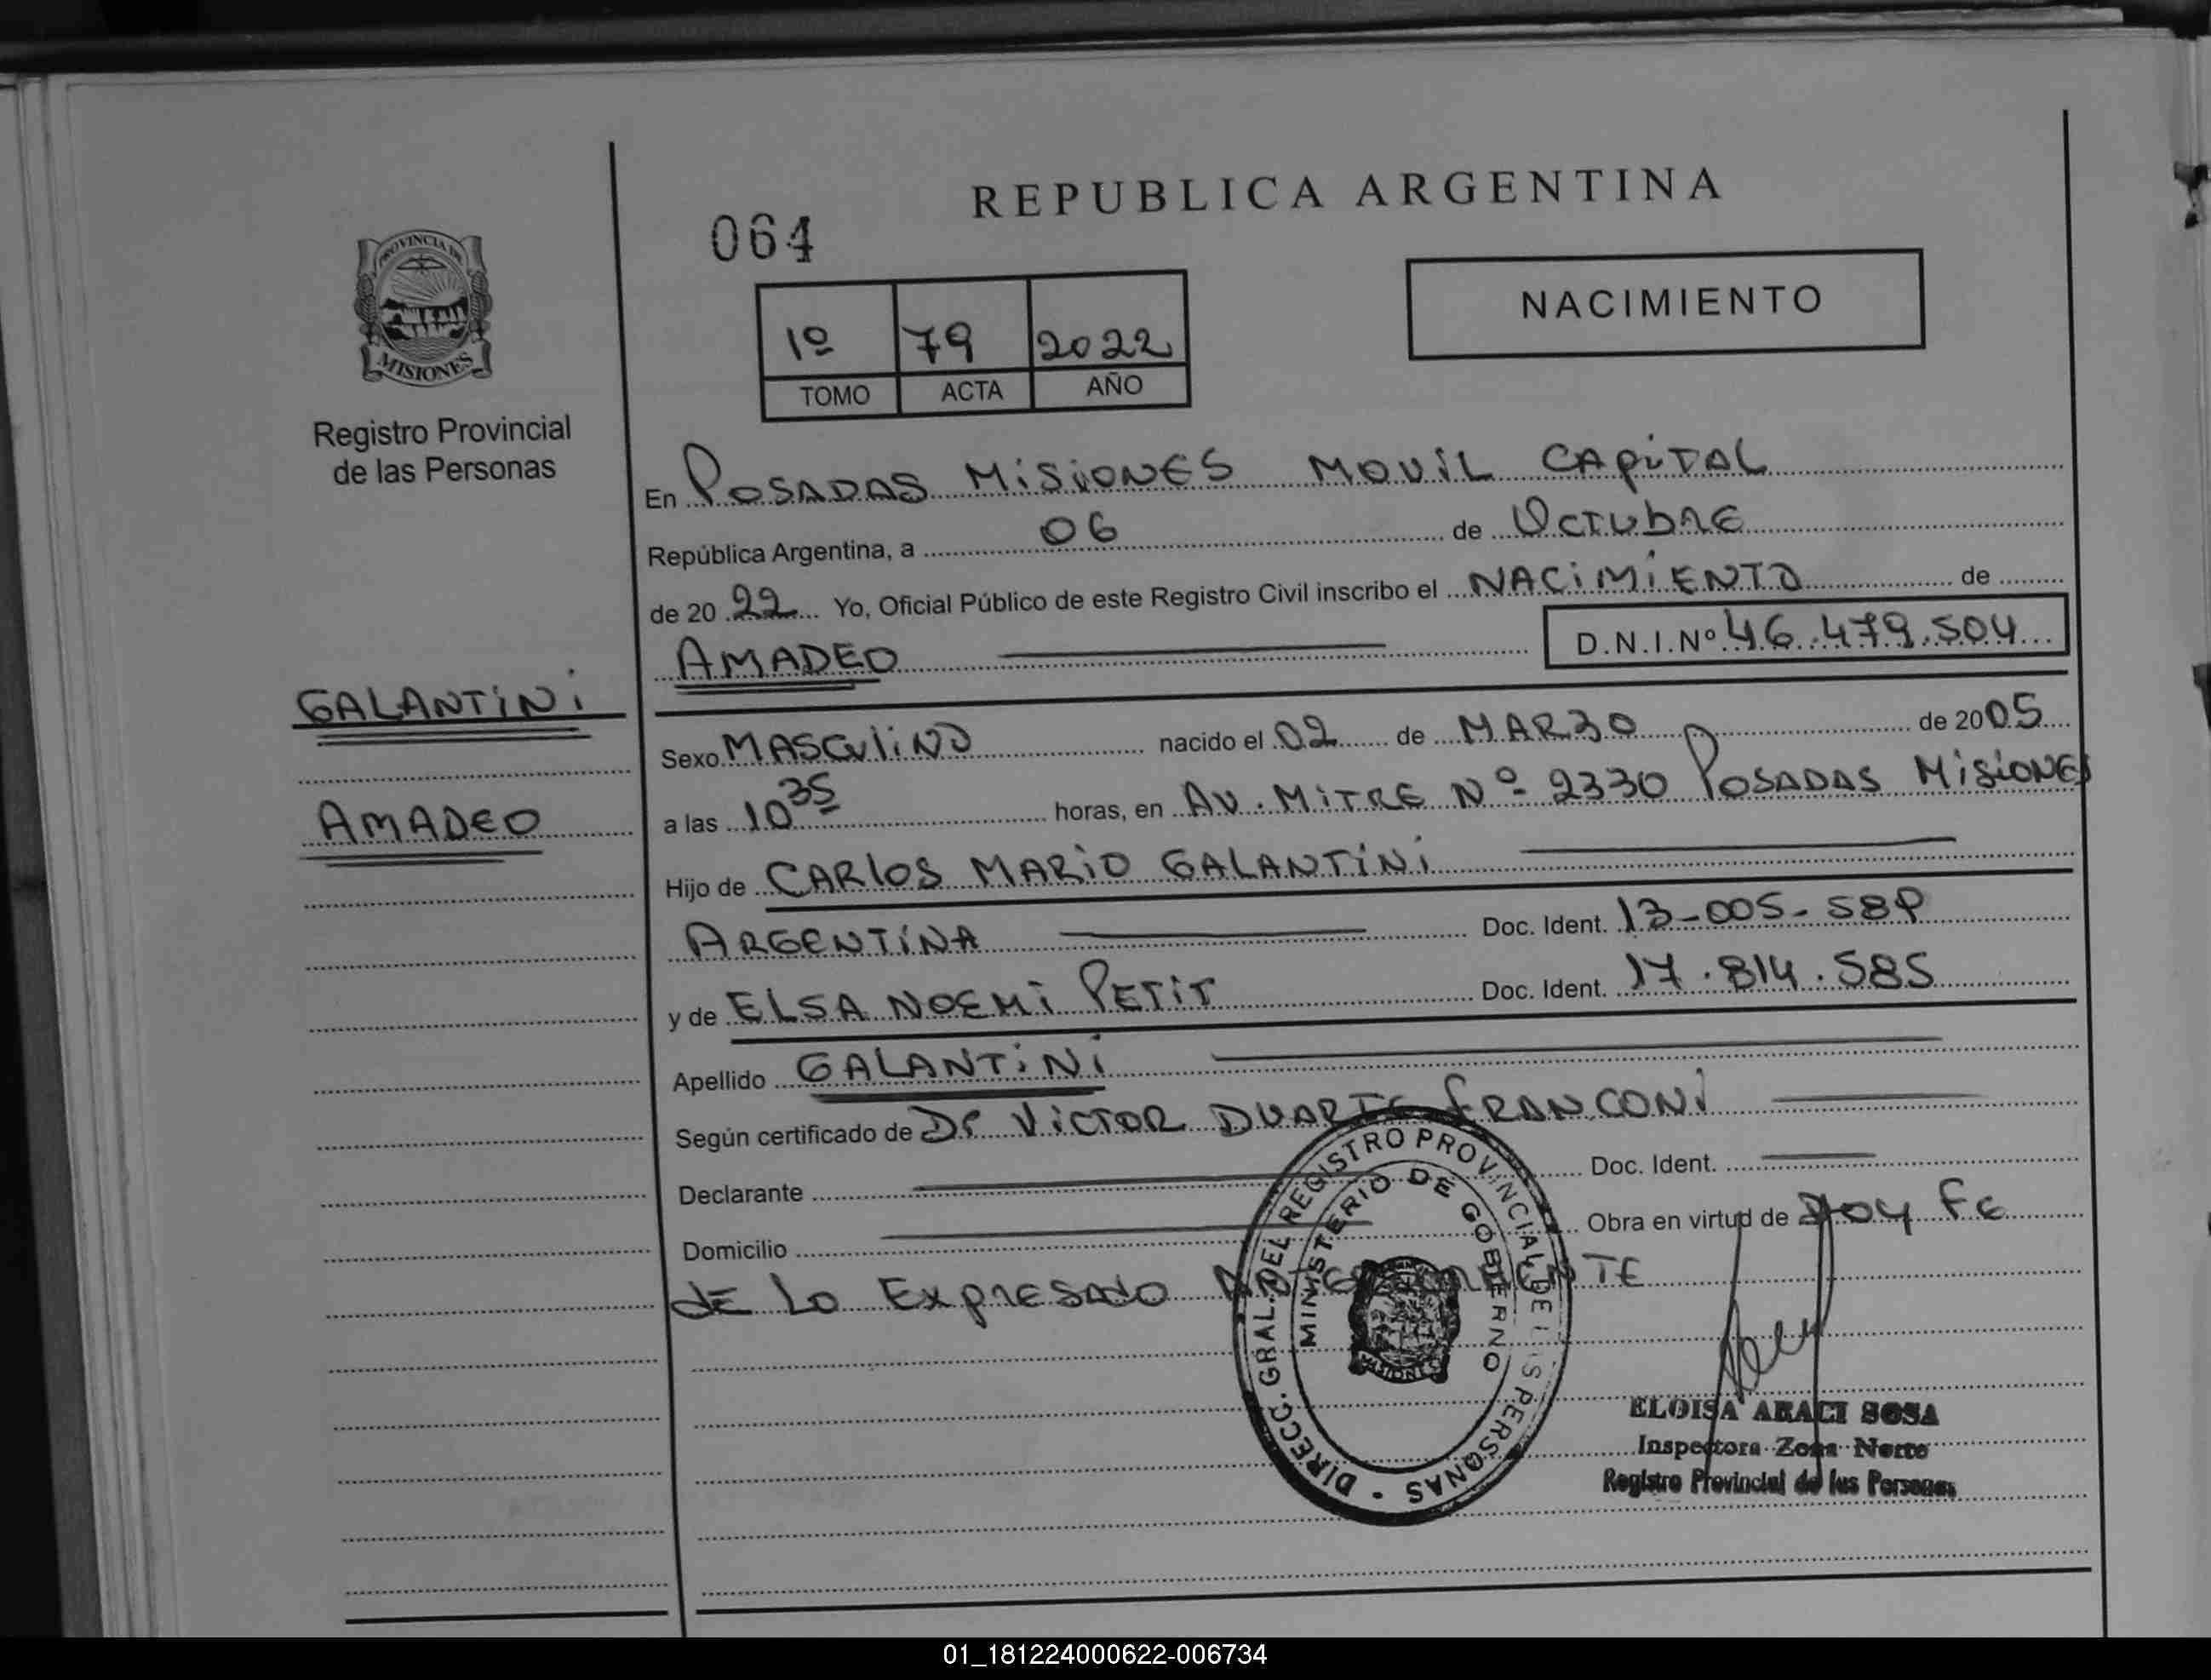 REPUBLICA ARGENTINA
064
NACIMIENTO
1º 79 2022
TOMO ACTA AÑO
PROVINCIA DE
MISIONES
Registro Provincial
de las Personas
En POSADAS MiSiONES MOViL CAPiTAL
República Argentina, a 06 de OCTUbRE
de 20 22 Yo, Oficial Público de este Registro Civil inscribo el NACiMiENTO de
AMADEO D.N.I.Nº 46.479.504
GALANTiNi
Sexo MASCuliNO nacido el 02 de MARZO de 2005
AMADEO
a las 10 35 horas, en AV. MiTRE Nº 2330 POSADAS MiSiONES
Hijo de CARlOS MARiO GALANTiNi
ARGENTiNA Doc. Ident. 13-005-
y de ELSA NOEMi PETiT Doc. Ident. 17.814.585
Apellido GALANTiNi
Según certificado de Dr ViCTOR DUARTE FRANCONi
Declarante Doc. Ident.
Domicilio Obra en virtud de DOY FE
dE Lo EXpRESADO ANTERiORMENTE
DIRECC. GRAL. DEL REGISTRO PROVINCIAL DE LAS PERSONAS -
MINISTERIO DE GOBIERNO
MISIONES
ELOISA ARACI SOSA
Inspectora Zona Norte
Registro Provincial de las Personas
01_181224000622-006734